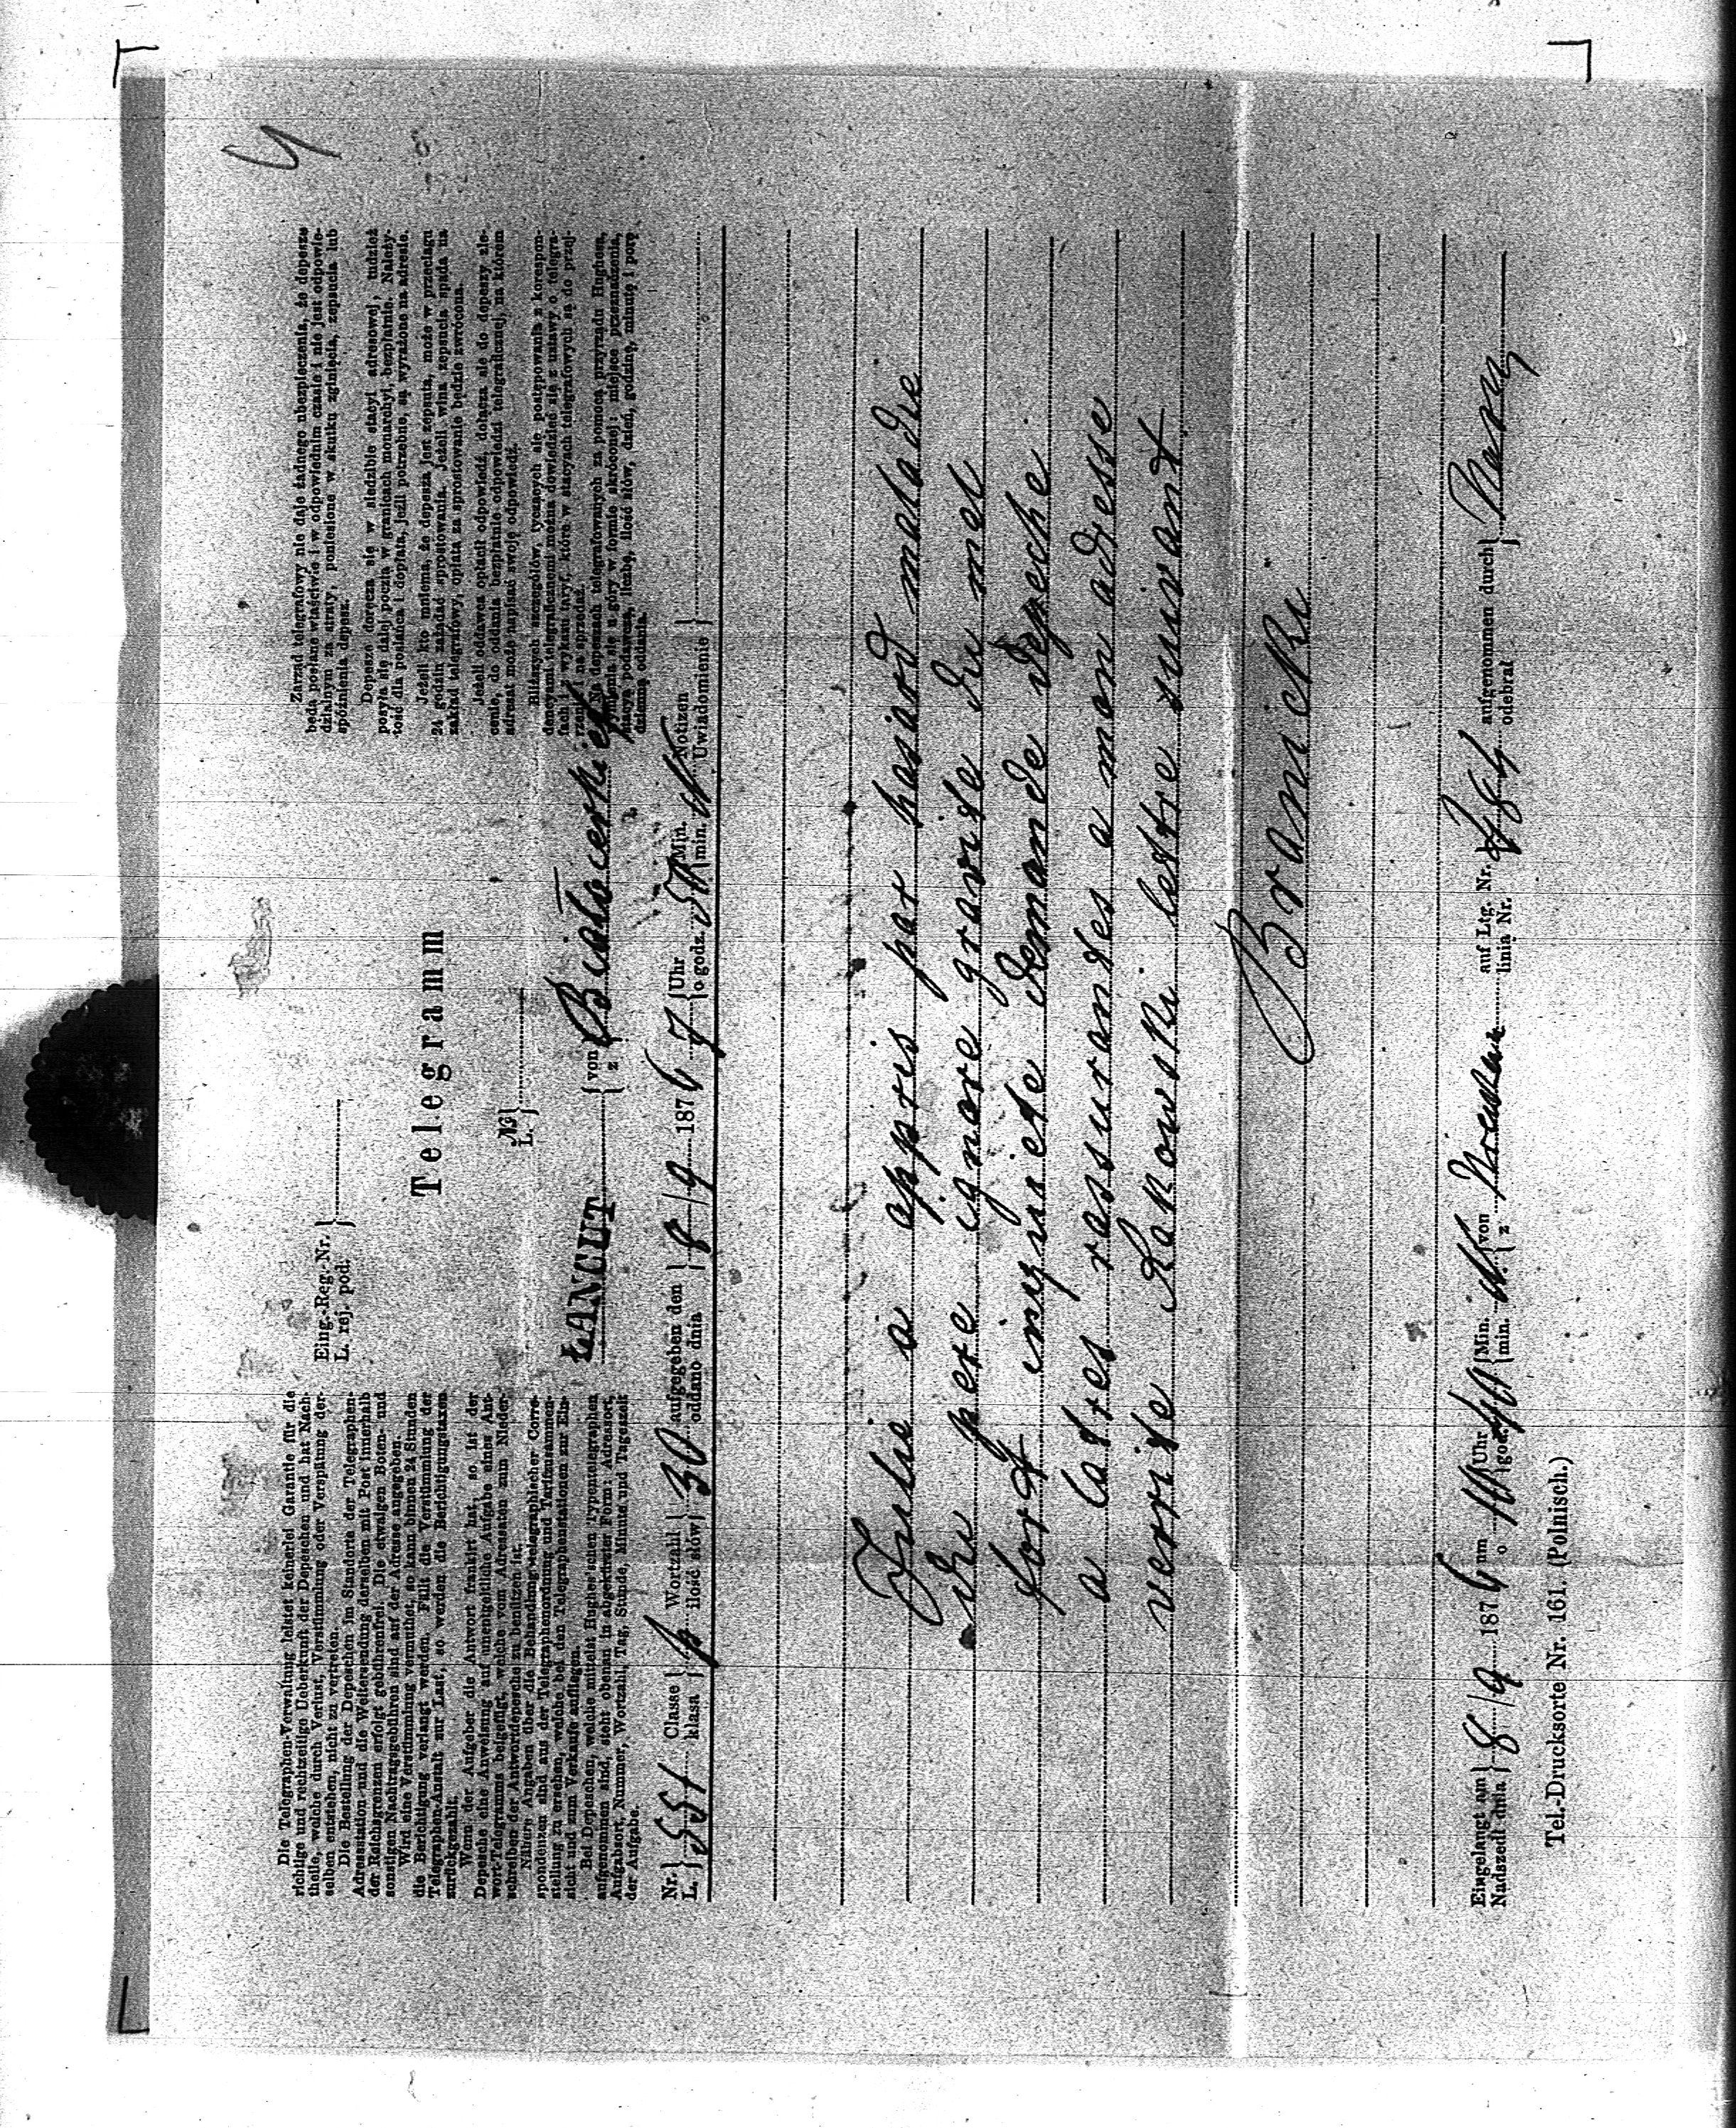 4
Eing.-Reg.-Nr.
L. rej. pod.
Telegramm
№
L.
Die Telegraphen-Verwaltung leistet keinerlei Garantie für die
richtige und rechtzeitige Ueberkunft der Depeschen und hat Nach-
theile, welche durch Verlust, Verstümmlung oder Verspätung der-
selben entstehen, nicht zu vertreten.
Die Bestellung der Depeschen im Standorte der Telegraphen-
Adressstation und die Weitersendung derselben mit Post innerhalb
der Reichsgrenzen erfolgt gebührenfrei. Die etwaigen Boten- und
sonstigen Nachtragsgebühren sind auf der Adresse angegeben.
Wird eine Verstümmlung vermuthet, so kann binnen 24 Stunden
die Berichtigung verlangt werden. Fällt die Verstümmlung der
Telegraphen-Anstalt zur Last, so werden die Berichtigungstaxen
zurückgezahlt.
Wenn der Aufgeber die Antwort frankirt hat, so ist der
Depesche eine Anweisung auf unentgeltliche Aufgabe eines Ant-
wort-Telegramms beigefügt, welche vom Adressaten zum Nieder-
schreiben der Antwortdepesche zu benützen ist.
Nähere Angaben über die Behandlung telegraphischer Corre-
spondenzen sind aus der Telegraphenordnung und Tarifzusammen-
stellung zu ersehen, welche bei den Telegraphenstationen zur Ein-
sicht und zum Verkaufe aufliegen.
Bei Depeschen, welche mittelst Hughes'schen Typentelegraphen
aufgenommen sind, steht obenan in abgekürzter Form: Adressort,
Aufgabsort, Nummer, Wortzahl, Tag, Stunde, Minute und Tageszeit
der Aufgabe.
Zarząd telegrafowy nie daje żadnego ubezpieczenia, że depesze
będą posłane właściwie i w odpowiednim czasie i nie jest odpowie-
dzialnym za straty, poniesione w skutku zginięcia, zepsucia lub
spóźnienia depesz.
Depesze doręcza się w siedzibie stacyi adresowej, tudzież
posyła się dalej pocztą w granicach monarchyi, bezpłatnie. Należy-
tość dla posłańca i dopłata, jeżli potrzebne, są wyrażone na adresie.
Jeżeli kto mniema, że depesza jest zepsuta, może w przeciągu
24 godzin zażądać sprostowania. Jeżeli wina zepsucia spada na
zakład telegrafowy, opłata za sprostowanie będzie zwrócona.
Jeżeli oddawca opłacił odpowiedź, dołącza się do depeszy zle-
cenie, do oddania bezpłatnie odpowiedzi telegraficznej, na którem
adresat może napisać swoję odpowiedź.
Bliższych szczegółów, tyczących się postępowania z korespon-
dencyami telegraficznemi można dowiedzieć się z ustawy o telegra-
fach i z wykazu taryf, które w stacyach telegrafowych są do przej-
rzenia i na sprzedaż.
depeszach telegrafowanych za pomocą przyrządu Hughesa,
wymienia się u góry w formie skróconej: miejsce przeznaczenia,
miejsce podawcze, liczbę, ilość słów, dzień, godzinę, minutę i porę
dzienną oddania.
ŁAŃCUT von z Białocerkiet
Nr. L. 551 Classe klasa Wortzahl Ilość słów 30 aufgegeben den oddano dnia 8/9 1876 7 Uhr o godz. Min. min. Notizen Uwiadomienie
Julie a appris par hasard maladie
du pere ignore gravite du mel
fort inquiete demande depeche
a latres rassurantes a mon adresse
verite Rakowski lettre suivant
Branicki
Eingelangt am Nadszedł dnia 8/9 1876 um o Uhr godz. Min. min. von z auf Ltg. Nr. linia Nr. aufgenomen durch odebrał
Tel.-Drucksorte Nr. 161. (Polnisch.)